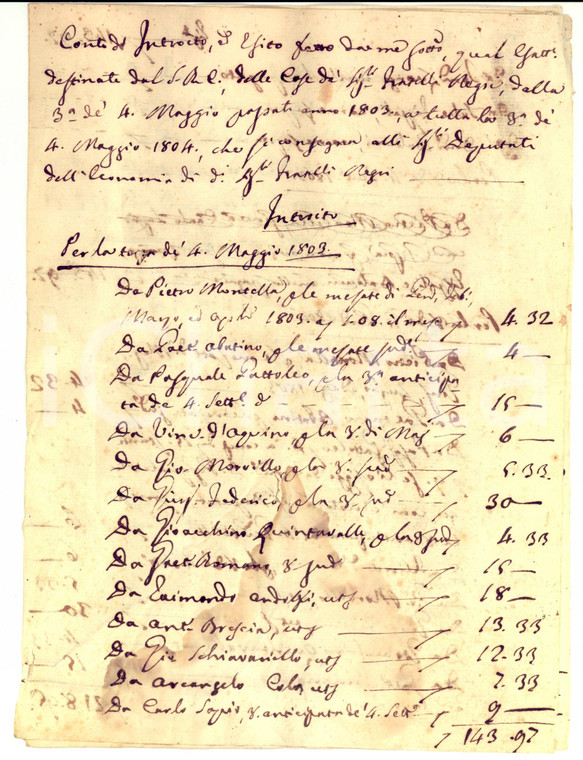 Conto d' Introito, ed Esito fatto da me sotto, qual Esatt.
destinato dal S.R.C., delle Case de' Sig.ri Fratelli Regri, dalla
3.a de' 4. Maggio passato anno 1803. a tutta la 3.a de'
4. Maggio 1804, che si consegna alli Sig.ri Deputati
dell'Economia di d. Sig.ri Fratelli Regri
Introito
Per la terza de' 4. Maggio 1803
Da Pietro Montella, p le mesate di
Marzo, ed Aprile 1803. a 1.08. il mese 4.32
Da Gaet. Abatino, p le mesate sud.e 4 —
Da Pasquale Lattoleo, p la 3.a anticipa
ta de 4. Sett.e 15 —
Da Vinc. d'Aquino, p la 3. di Mag. 6 —
Da Gio. Morvillo, p la 3. sud.a 5.33.
Da Gius. Federico, p la 3. sud.a 30 —
Da Gioacchino Quintavalle, p la 3. sud.a 4.33
Da Gaet. Romano, 3. sud.a 15 —
Da Raimondo 18 —
Da Ant. Brescia, 13.33
Da Gio. Schiavaniello, 12.33
Da Arcangelo 7.33
Da Carlo Sapio, 3. anticipata de' 4. Sett. 9 —
143.97